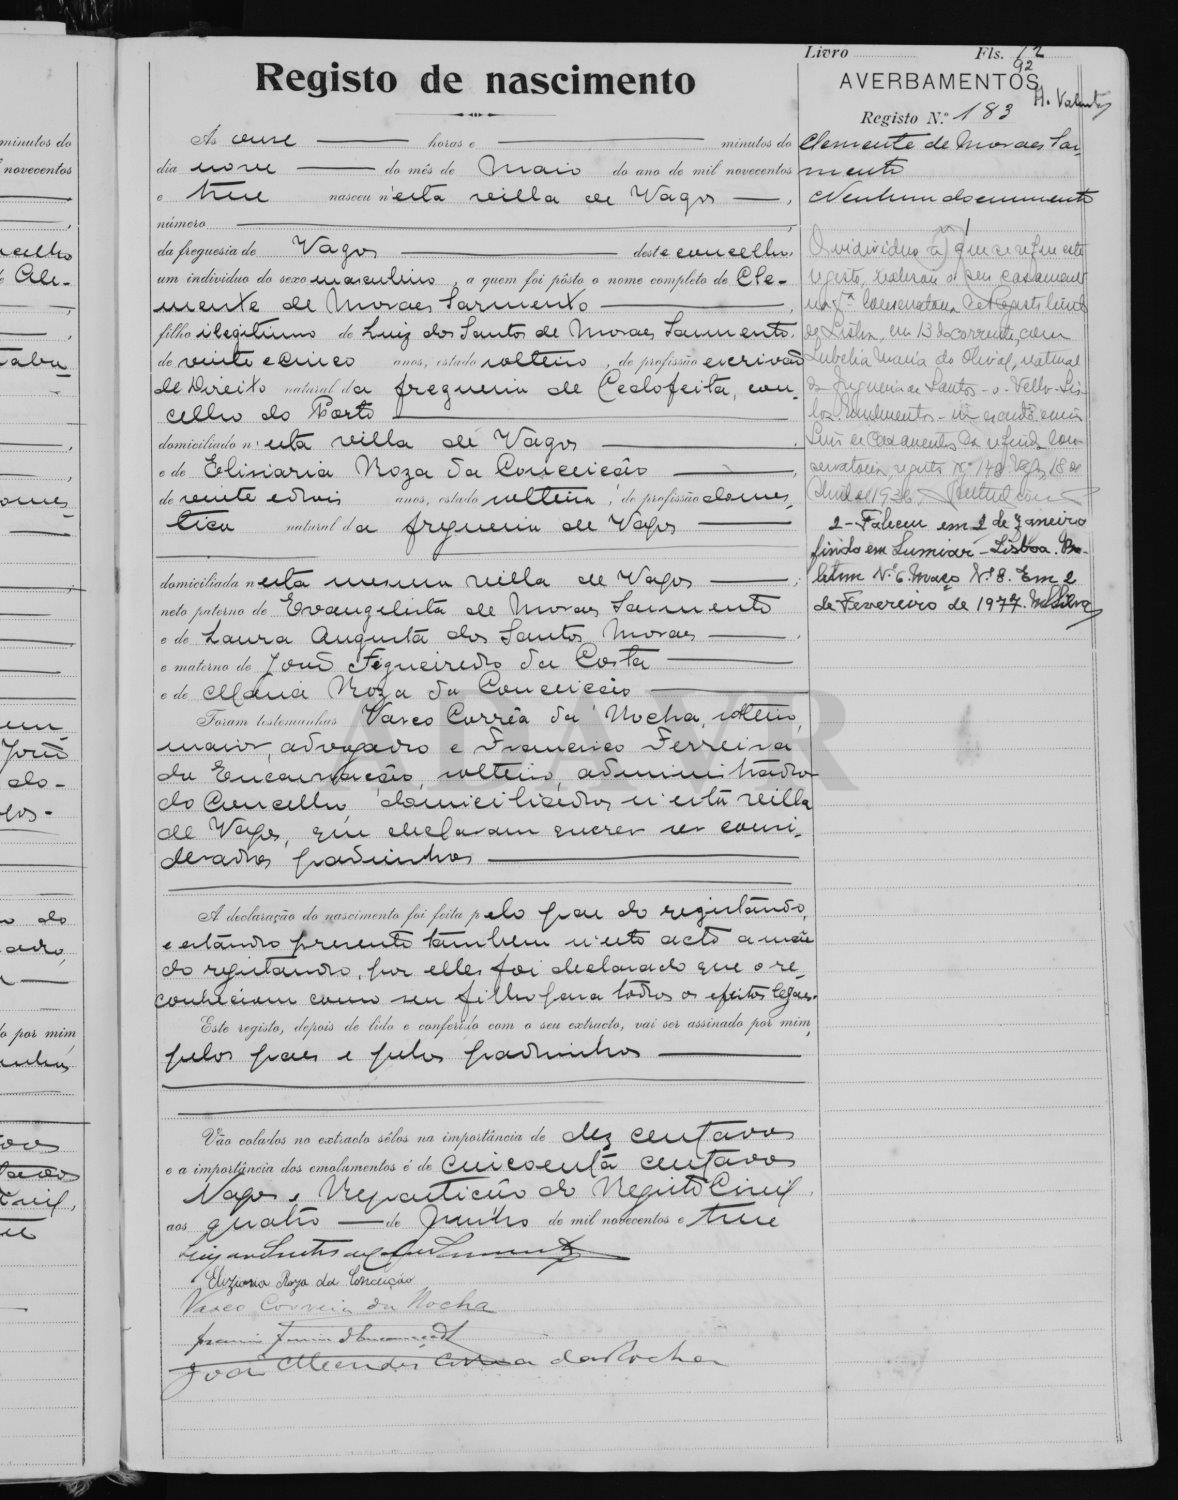 Livro Fls. 12
92
Registo de nascimento
AVERBAMENTOS
H. Valente
Registo N.º 183
Às onze horas e minutos do
dia nove do mês de Maio do ano de mil novecentos
e treze nasceu n'esta villa de Vagos
número
da freguesia de Vagos deste concelho,
um individuo do sexo masculino, a quem foi pôsto o nome completo de Cle-
mente de Moraes Sarmento
filho ilegitimo de Luiz dos Santos de Moraes Sarmento.
de vinte e cinco anos, estado solteiro, de profissão escrivão
de Direito natural da freguesia de Cedofeita, con-
celho do Porto
domiciliado n'esta villa de Vagos
e de Elisiaria Roza da Conceição
de vinte e dois anos, estado solteira, de profissão domes-
tica natural da freguesia de Vagos
domiciliada n'esta mesma villa de Vagos
neto paterno de Evangelista de Moraes Sarmento
e de Laura Augusta dos Santos Moraes
e materno de João Figueiredo da Costa
e de Maria Roza da Conceição
Foram testemunhas Vasco Corrêa da Rocha, solteiro,
maior, advogado e Francisco Ferreira
da Encarnação, solteiro, administrador
do Concelho, domiciliados n'esta villa
de Vagos, que declaram querer ser consi-
derados padrinhos
A declaração do nascimento foi feita pelo pae do registando,
e estando presente tambem n'este acto a mãe
do registando, por elles foi declarado que o re-
conheciam como seu filho para todos os efeitos legaes.
Este registo, depois de lido e conferido com o seu extracto, vai ser assinado por mim,
pelos paes e pelos padrinhos
Vão colados no extracto sêlos na importância de dez centavos
e a importância dos emolumentos é de cincoenta centavos
Vagos e Repartição do Registo Civil,
aos quatro de Junho de mil novecentos e treze
Luiz dos Santos de Moraes Sarmento
Eliziaria Roza da Conceição
Vasco Correia da Rocha
Francisco Ferreira d'Encarnação
João Mendes Correa da Rocha
Clemente de Moraes Sar-
mento
Nenhum documento
1
O individuo a que se refere este
registo, realizou o seu casamento
na Conservatoria do Registo Civil
de Lisboa, em 13 do corrente, com
Lubelia Maria do Olival, natural
da freguesia de Santos-o-Velho-Lis-
boa.
Conservatoria, registo Nº 148. Vagos, 18 de
Abril de 1936.
2-Faleceu em 2 de Janeiro
findo em Lumiar-Lisboa. Bo-
letim Nº 6. Maço Nº 8. Em 2
de Fevereiro de 1977. MSilva
ADAVR
minutos do
novecentos
ncelho
Ale-
João
do-
gos.
do
por mim